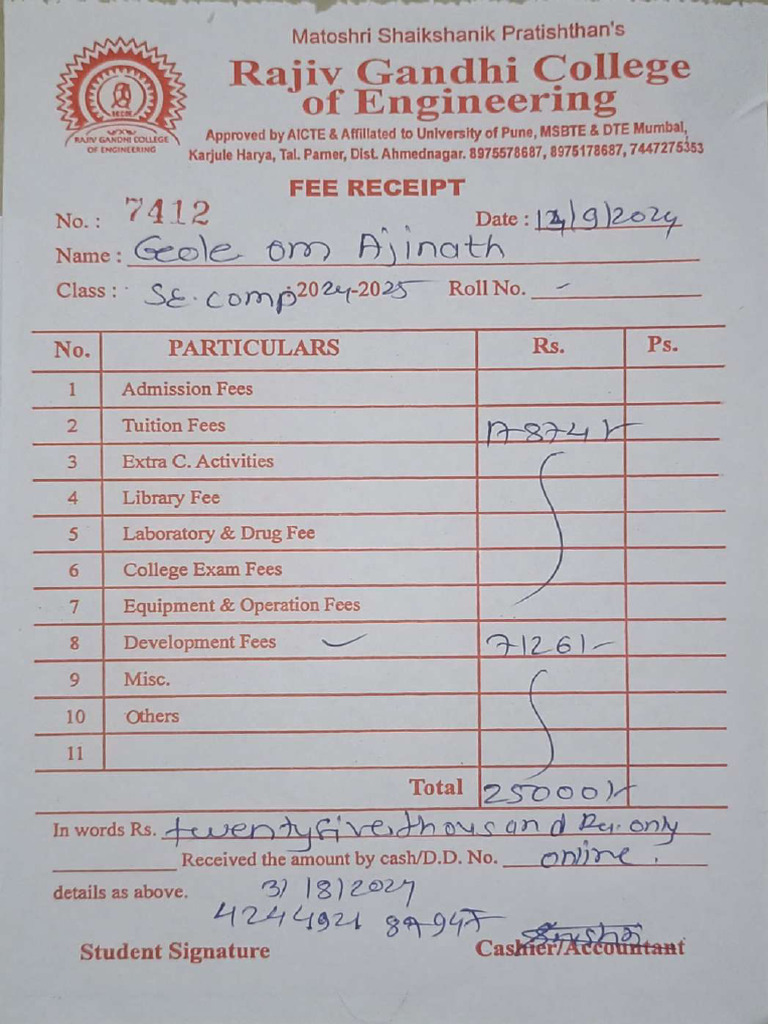 Matoshri Shaikshanik Pratishthan's
Rajiv Gandhi College
of Engineering
RAJIV GANDHI COLLEGE
OF ENGINEERING
Approved by AICTE & Affillated to University of Pune, MSBTE & DTE Mumbai,
Karjule Harya, Tal. Parner, Dist. Ahmednagar. 8975578687, 8975178687, 7447275353
FEE RECEIPT
No. : 7412 Date : 14/9/2024
Name : Geole om Ajinath
Class : S.E. comp 2024-2025 Roll No. -
No. PARTICULARS Rs. Ps.
1 Admission Fees
2 Tuition Fees 17874/-
3 Extra C. Activities
4 Library Fee
5 Laboratory & Drug Fee
6 College Exam Fees
7 Equipment & Operation Fees
8 Development Fees 7126/-
9 Misc.
10 Others
11
Total 25000/-
In words Rs. twentyfivethousand Rs. only
Received the amount by cash/D.D. No. online.
details as above. 31/8/2024
Student Signature Cashier/Accountant